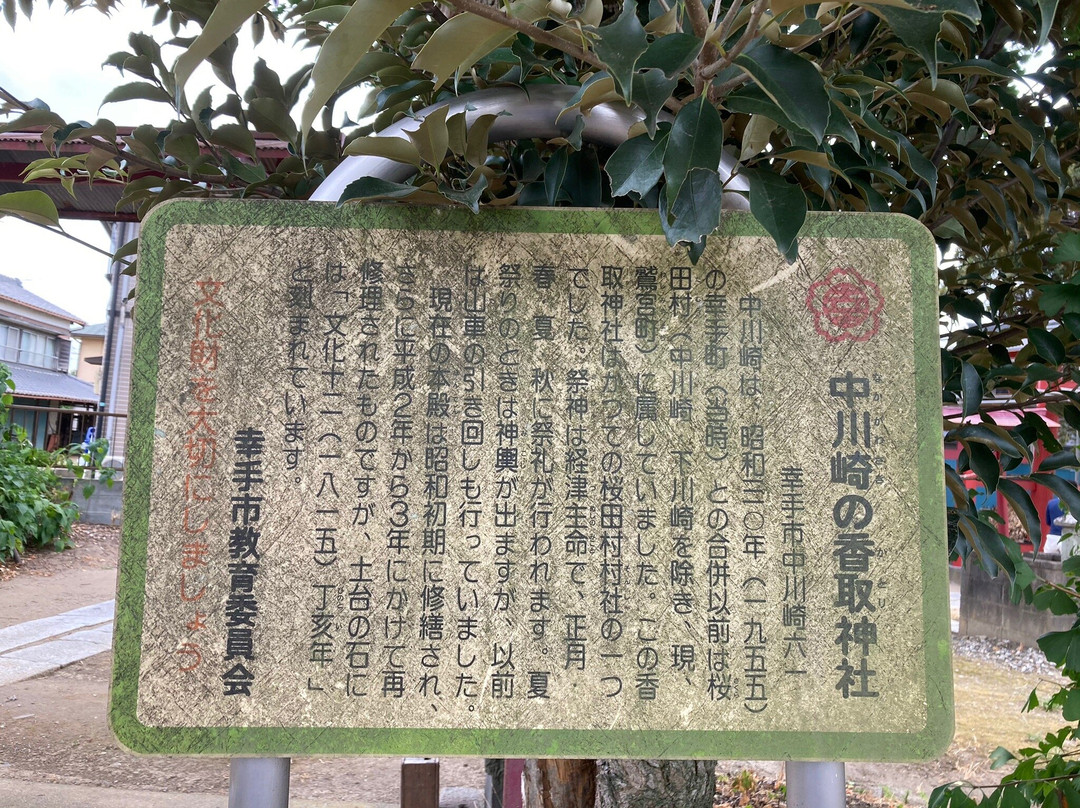 中川崎の香取神社
幸手市中川崎六一
中川崎は、昭和三〇年（一九五五）
の幸手町（当時）との合併以前は桜
田村（中川崎、下川崎を除き、現、
鷲宮町）に属していました。この香
取神社はかつての桜田村村社の一つ
でした。祭神は経津主命で、正月・
春・夏・秋に祭礼が行われます。夏
祭りのときは神輿が出ますが、以前
は山車の引き回しも行っていました。
現在の本殿は昭和初期に修繕され、
さらに平成２年から３年にかけて再
修理されたものですが、土台の石に
は「文化十二（一八一五）丁亥年」
と刻まれています。
幸手市教育委員会
文化財を大切にしましょう